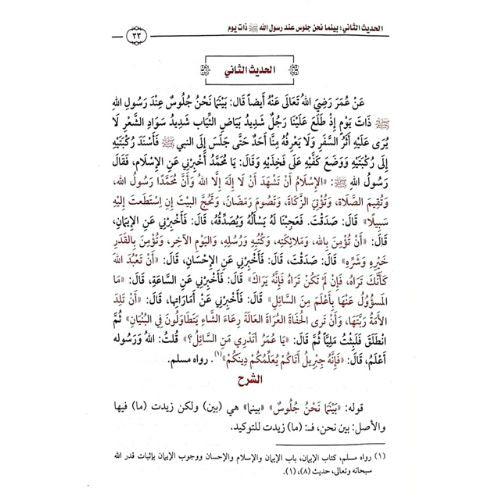 الحديث الثاني: بينما نحن جلوس عند رسول الله ﷺ ذات يوم
٢٣
الحديث الثاني
عَنْ عُمَرَ رَضِيَ اللهُ تَعَالَى عَنْهُ أَيضاً قَالَ: بَيْنَمَا نَحْنُ جُلُوسٌ عِنْدَ رَسُولِ اللهِ
ﷺ ذَاتَ يَوْمٍ إِذْ طَلَعَ عَلَيْنَا رَجُلٌ شَدِيدُ بَيَاضِ الثِّيَابِ شَدِيدُ سَوَادِ الشَّعْرِ لَا
يُرَى عَلَيْهِ أَثَرُ السَّفَرِ وَلَا يَعْرِفُهُ مِنَّا أَحَدٌ حَتَّى جَلَسَ إِلَى النبي ﷺ فَأَسْنَدَ رُكْبَتَيْهِ
إِلَى رُكْبَتَيْهِ وَوَضَعَ كَفَّيْهِ عَلَى فَخِذَيْهِ وَقَالَ: يَا مُحَمَّدُ أَخْبِرْنِي عَنِ الإِسْلَامِ، فَقَالَ
رَسُولُ اللهِ ﷺ: «الإِسْلَامُ أَنْ تَشْهَدَ أَنْ لَا إِلَهَ إِلَّا اللهُ وَأَنَّ مُحَمَّدًا رَسُولُ اللهِ،
وَتُقِيمَ الصَّلَاةَ، وَتُؤْتِيَ الزَّكَاةَ، وَتَصُومَ رَمَضَانَ، وَتَحُجَّ البَيْتَ إِنِ اسْتَطَعتَ إِلَيْهِ
سَبِيلًا» قَالَ: صَدَقْتَ. فَعَجِبْنَا لَهُ يَسْأَلُهُ وَيُصَدِّقُهُ، قَالَ: فَأَخْبِرْنِي عَنِ الإِيمَانِ،
قَالَ: «أَنْ تُؤْمِنَ بِاللهِ، وَمَلَائِكَتِهِ، وَكُتُبِهِ وَرُسُلِهِ، وَالْيَوْمِ الآخِرِ، وَتُؤْمِنَ بِالْقَدَرِ
خَيْرِهِ وَشَرِّهِ» قَالَ: صَدَقْتَ، قَالَ: فَأَخْبِرْنِي عَنِ الإِحْسَانِ، قَالَ: «أَنْ تَعْبُدَ اللهَ
كَأَنَّكَ تَرَاهُ، فَإِنْ لَمْ تَكُنْ تَرَاهُ فَإِنَّهُ يَرَاكَ» قَالَ: فَأَخْبِرْنِي عَنِ السَّاعَةِ، قَالَ: «مَا
المَسْؤُولُ عَنْهَا بِأَعْلَمَ مِنَ السَّائِلِ» قَالَ: فَأَخْبِرْنِي عَنْ أَمَارَاتِهَا، قَالَ: «أَنْ تَلِدَ
الأَمَةُ رَبَّتَهَا، وَأَنْ تَرى الحُفَاةَ العُرَاةَ العَالَةَ رِعَاءَ الشَّاءِ يَتَطَاوَلُونَ فِي البُنْيَانِ» ثُمَّ
انْطَلَقَ فَلَبِثْتُ مَلِيًّا ثُمَّ قَالَ: «يَا عُمَرُ أَتَدْرِي مَنِ السَّائِلُ؟» قُلْتُ: اللهُ وَرَسُوله
أَعْلَمُ، قَالَ: «فَإِنَّهُ جِبْرِيلُ أَتَاكُمْ يُعَلِّمُكُمْ دِينَكُمْ»(١). رواه مسلم.
الشرح
قوله: «بَيْنَمَا نَحْنُ جُلُوسٌ» «بينما» هي (بين) ولكن زيدت (ما) فيها
والأصل: بين نحن، فـ: (ما) زيدت للتوكيد.
(١) رواه مسلم، كتاب الإيمان، باب الإيمان والإسلام والإحسان ووجوب الإيمان بإثبات قدر الله
سبحانه وتعالى، حديث (٨)، (١).